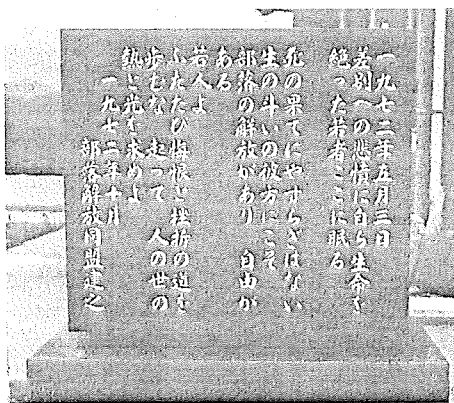 一九七二年五月三日
差別への悲憤に自ら生命を
絶った若者ここに眠る
死の果てにやすらぎはない
生の斗いの彼方にこそ
部落の解放があり 自由が
ある
若人よ
ふたたび悔恨と挫折の道を
歩むな 走って 人の世の
熱と光を求めよ
一九七二年十月
部落解放同盟建之